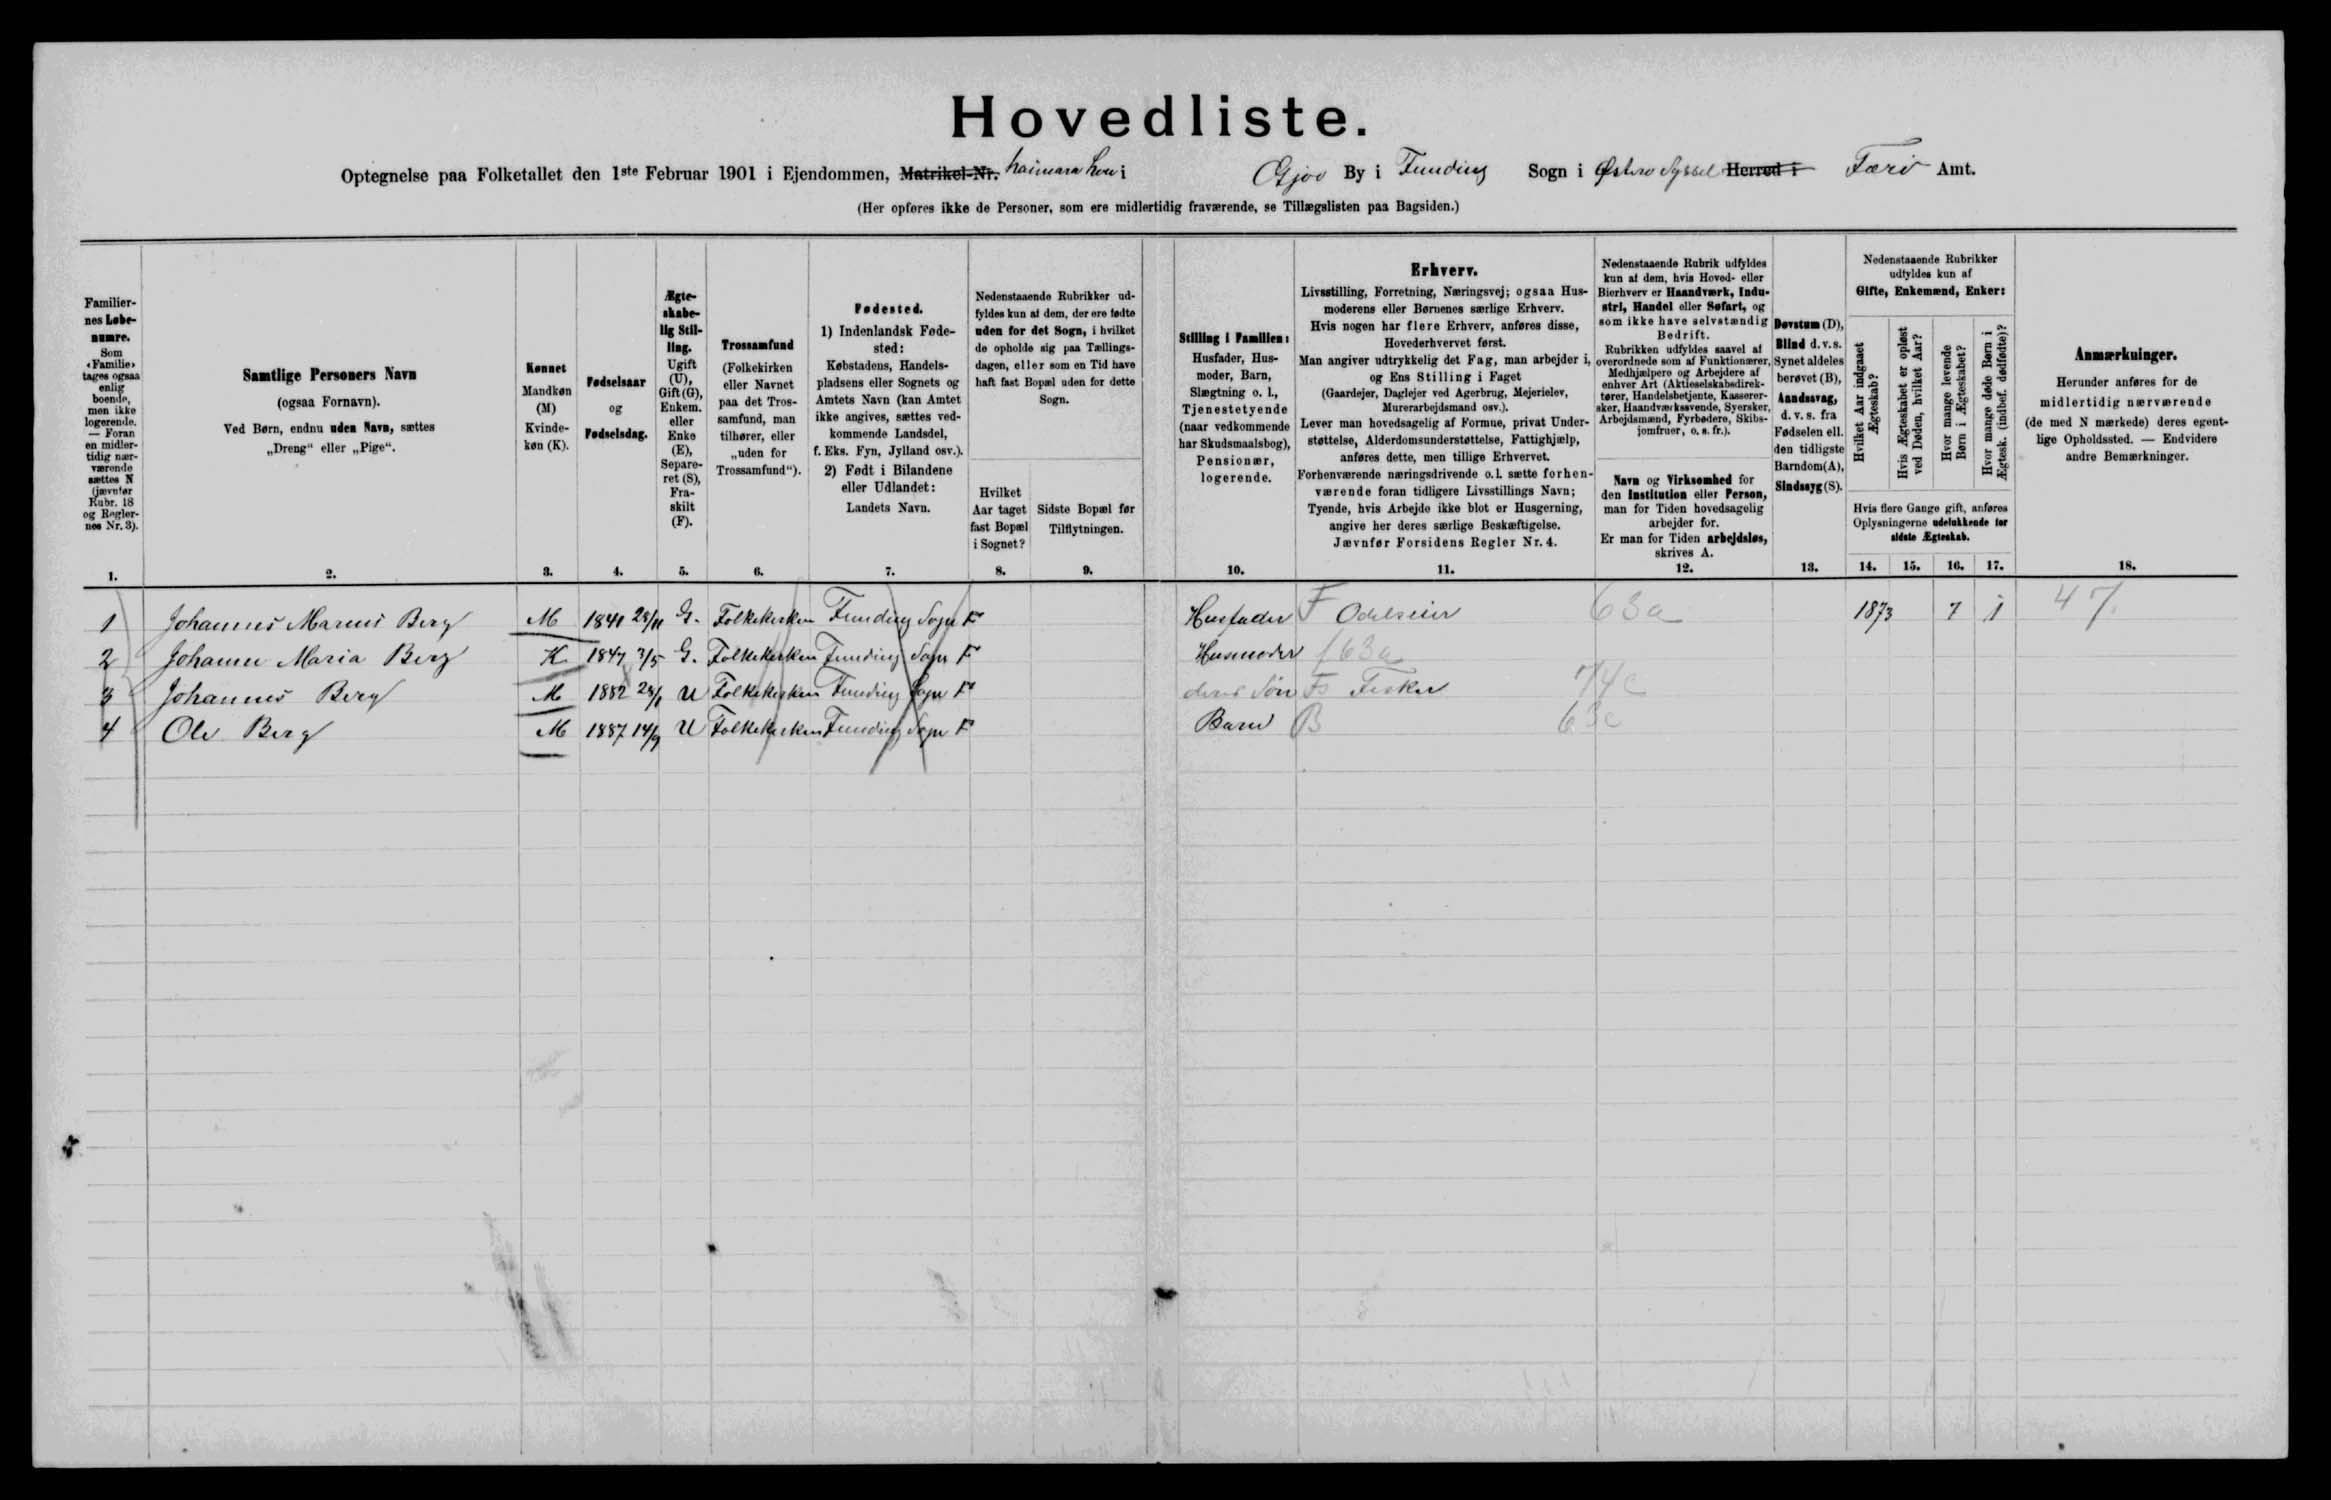 Hovedliste.
Optegnelse paa Folketallet den 1ste Februar 1901 i Ejendommen, Matrikel-Nr. i Gjov By i Funding Sogn i Østerø Syssel Herred i Færø Amt.
(Her opføres ikke de Personer, som ere midlertidig fraværende, se Tillægslisten paa Bagsiden.)
Familier-
nes Løbe-
numre.
Som
«Familie»
tages ogsaa
enlig
boende,
men ikke
logerende.
— Foran
en midler-
tidig nær-
værende
sættes N
(jævnfør
Rubr. 18
og Regler-
nes Nr. 3).
Samtlige Personers Navn
(ogsaa Fornavn).
Ved Børn, endnu uden Navn, sættes
„Dreng“ eller „Pige“.
Kønnet
Mandkøn
(M)
Kvinde-
køn (K).
Fødselsaar
og
Fødselsdag.
Ægte-
skabe-
lig Stil-
ling.
Ugift
(U),
Gift (G),
Enkem.
eller
Enke
(E),
Separe-
ret (S),
Fra-
skilt
(F).
Trossamfund
(Folkekirken
eller Navnet
paa det Tros-
samfund, man
tilhører, eller
„uden for
Trossamfund“).
Fødested.
1) Indenlandsk Føde-
sted:
Købstadens, Handels-
pladsens eller Sognets og
Amtets Navn (kan Amtet
ikke angives, sættes ved-
kommende Landsdel,
f. Eks. Fyn, Jylland osv.).
2) Født i Bilandene
eller Udlandet:
Landets Navn.
Nedenstaaende Rubrikker ud-
fyldes kun af dem, der ere fødte
uden for det Sogn, i hvilket
de opholde sig paa Tællings-
dagen, eller som en Tid have
haft fast Bopæl uden for dette
Sogn.
Hvilket
Aar taget
fast Bopæl
i Sognet?
Sidste Bopæl før
Tilflytningen.
Stilling i Familien:
Husfader, Hus-
moder, Barn,
Slægtning o. l.,
Tjenestetyende
(naar vedkommende
har Skudsmaalsbog),
Pensionær,
logerende.
Erhverv.
Livsstilling, Forretning, Næringsvej; ogsaa Hus-
moderens eller Børnenes særlige Erhverv.
Hvis nogen har flere Erhverv, anføres disse,
Hovederhvervet først.
Man angiver udtrykkelig det Fag, man arbejder i,
og Ens Stilling i Faget
(Gaardejer, Daglejer ved Agerbrug, Mejerielev,
Murerarbejdsmand osv.).
Lever man hovedsagelig af Formue, privat Under-
støttelse, Alderdomsunderstøttelse, Fattighjælp,
anføres dette, men tillige Erhvervet.
Forhenværende næringsdrivende o. l. sætte forhen-
værende foran tidligere Livsstillings Navn;
Tyende, hvis Arbejde ikke blot er Husgerning,
angive her deres særlige Beskæftigelse.
Jævnfør Forsidens Regler Nr. 4.
Nedenstaaende Rubrik udfyldes
kun af dem, hvis Hoved- eller
Bierhverv er Haandværk, Indu-
stri, Handel eller Søfart, og
som ikke have selvstændig
Bedrift.
Rubrikken udfyldes saavel af
overordnede som af Funktionærer,
Medhjælpere og Arbejdere af
enhver Art (Aktieselskabsdirek-
tører, Handelsbetjente, Kasserer-
sker, Haandværkssvende, Syersker,
Arbejdsmænd, Fyrbødere, Skibs-
jomfruer, o. s. fr.).
Navn og Virksomhed for
den Institution eller Person,
man for Tiden hovedsagelig
arbejder for.
Er man for Tiden arbejdsløs,
skrives A.
Døvstum (D),
Blind d. v. s.
Synet aldeles
berøvet (B),
Aandssvag,
d. v. s. fra
Fødselen ell.
den tidligste
Barndom (A),
Sindssyg (S).
Nedenstaaende Rubrikker
udfyldes kun af
Gifte, Enkemænd, Enker:
Hvilket Aar indgaaet
Ægteskab?
Hvis Ægteskabet er opløst
ved Døden, hvilket Aar?
Hvor mange levende
Børn i Ægteskabet?
Hvor mange døde Børn i
Ægtesk. (indbef. dødfødte)?
Hvis flere Gange gift, anføres
Oplysningerne udelukkende for
sidste Ægteskab.
Anmærkninger.
Herunder anføres for de
midlertidig nærværende
(de med N mærkede) deres egent-
lige Opholdssted. — Endvidere
andre Bemærkninger.
1. 2. 3. 4. 5. 6. 7. 8. 9. 10. 11. 12. 13. 14. 15. 16. 17. 18.
1 Johannes Marius Berg M 1841 28/11 G. Folkekirken Funding Sogn F Husfader F Odelseier 63a 1873 7 1 47.
2 Johanne Maria Berg K 1847 3/5 G. Folkekirken Funding Sogn F Husmoder 63a
3 Johannes Berg M 1882 28/1 U Folkekirken Funding Sogn F deres Søn Fs Fisker 74c
4 Ole Berg M 1887 14/9 U Folkekirken Funding Sogn F Barn B 63c